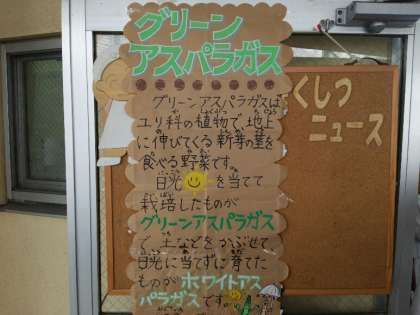 グリーン
アスパラガス
グリーンアスパラガスは
ユリ科の植物で、地上
に伸びてくる新芽の茎を
食べる野菜です。
日光を当てて
栽培したものが
グリーンアスパラガス
で、土などをかぶせて
日光に当てずに育てた
ものがホワイトアス
パラガスです。
くしつ
ニュース